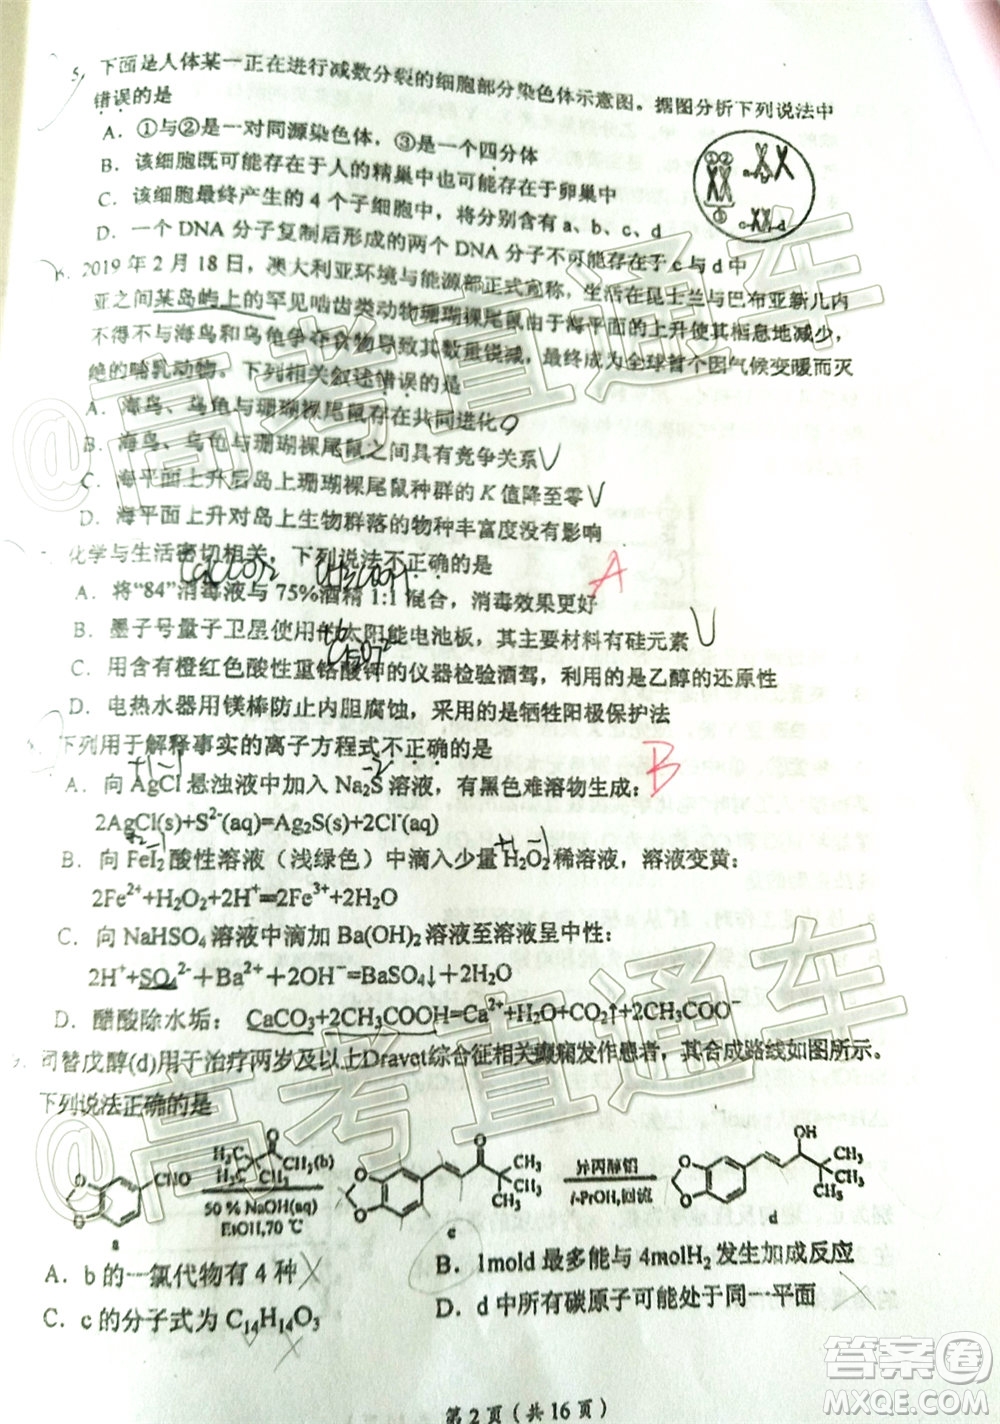 5、下面是人体某一正在进行减数分裂的细胞部分染色体示意图。据图分析下列说法中
错误的是
A．①与②是一对同源染色体，③是一个四分体
B．该细胞既可能存在于人的精巢中也可能存在于卵巢中
C．该细胞最终产生的 4 个子细胞中，将分别含有 a、b、c、d
D．一个 DNA 分子复制后形成的两个 DNA 分子不可能存在于 c 与 d 中
①②
a
b
③
c
d
2019 年 2 月 18 日，澳大利亚环境与能源部正式宣称，生活在昆士兰与巴布亚新几内
亚之间某岛屿上的罕见啮齿类动物珊瑚裸尾鼠由于海平面的上升使其栖息地减少，
不得不与海鸟和乌龟争夺食物导致其数量锐减，最终成为全球首个因气候变暖而灭
绝的哺乳动物。下列相关叙述错误的是
A．海鸟、乌龟与珊瑚裸尾鼠存在共同进化
B．海鸟、乌龟与珊瑚裸尾鼠之间具有竞争关系
C．海平面上升后岛上珊瑚裸尾鼠种群的 K 值降至零
D．海平面上升对岛上生物群落的物种丰富度没有影响
化学与生活密切相关，下列说法不正确的是
A
A．将“84”消毒液与 75%酒精 1:1 混合，消毒效果更好
B．墨子号量子卫星使用的太阳能电池板，其主要材料有硅元素
C．用含有橙红色酸性重铬酸钾的仪器检验酒驾，利用的是乙醇的还原性
D．电热水器用镁棒防止内胆腐蚀，采用的是牺牲阳极保护法
下列用于解释事实的离子方程式不正确的是
B
A．向 AgCl 悬浊液中加入 Na₂S 溶液，有黑色难溶物生成：
2AgCl(s)+S²⁻(aq)=Ag₂S(s)+2Cl⁻(aq)
B．向 FeI₂ 酸性溶液（浅绿色）中滴入少量 H₂O₂ 稀溶液，溶液变黄：
2Fe²⁺+H₂O₂+2H⁺=2Fe³⁺+2H₂O
C．向 NaHSO₄ 溶液中滴加 Ba(OH)₂ 溶液至溶液呈中性：
2H⁺+SO₄²⁻+Ba²⁺+2OH⁻=BaSO₄↓+2H₂O
D．醋酸除水垢：CaCO₃+2CH₃COOH=Ca²⁺+H₂O+CO₂↑+2CH₃COO⁻
司替戊醇(d)用于治疗两岁及以上Dravet综合征相关癫痫发作患者，其合成路线如图所示。
下列说法正确的是
CHO
a
CH₃(b)
50 % NaOH(aq)
EtOH,70 ℃
O
CH₃
CH₃
CH₃
c
异丙醇铝
i-PrOH,回流
OH
CH₃
CH₃
CH₃
d
A．b 的一氯代物有 4 种
B．1mold 最多能与 4molH₂ 发生加成反应
C．c 的分子式为 C₁₄H₁₄O₃
D．d 中所有碳原子可能处于同一平面
第 2 页（共 16 页）
@高考直通车
@高考直通车
答案圈
MXQE.COM